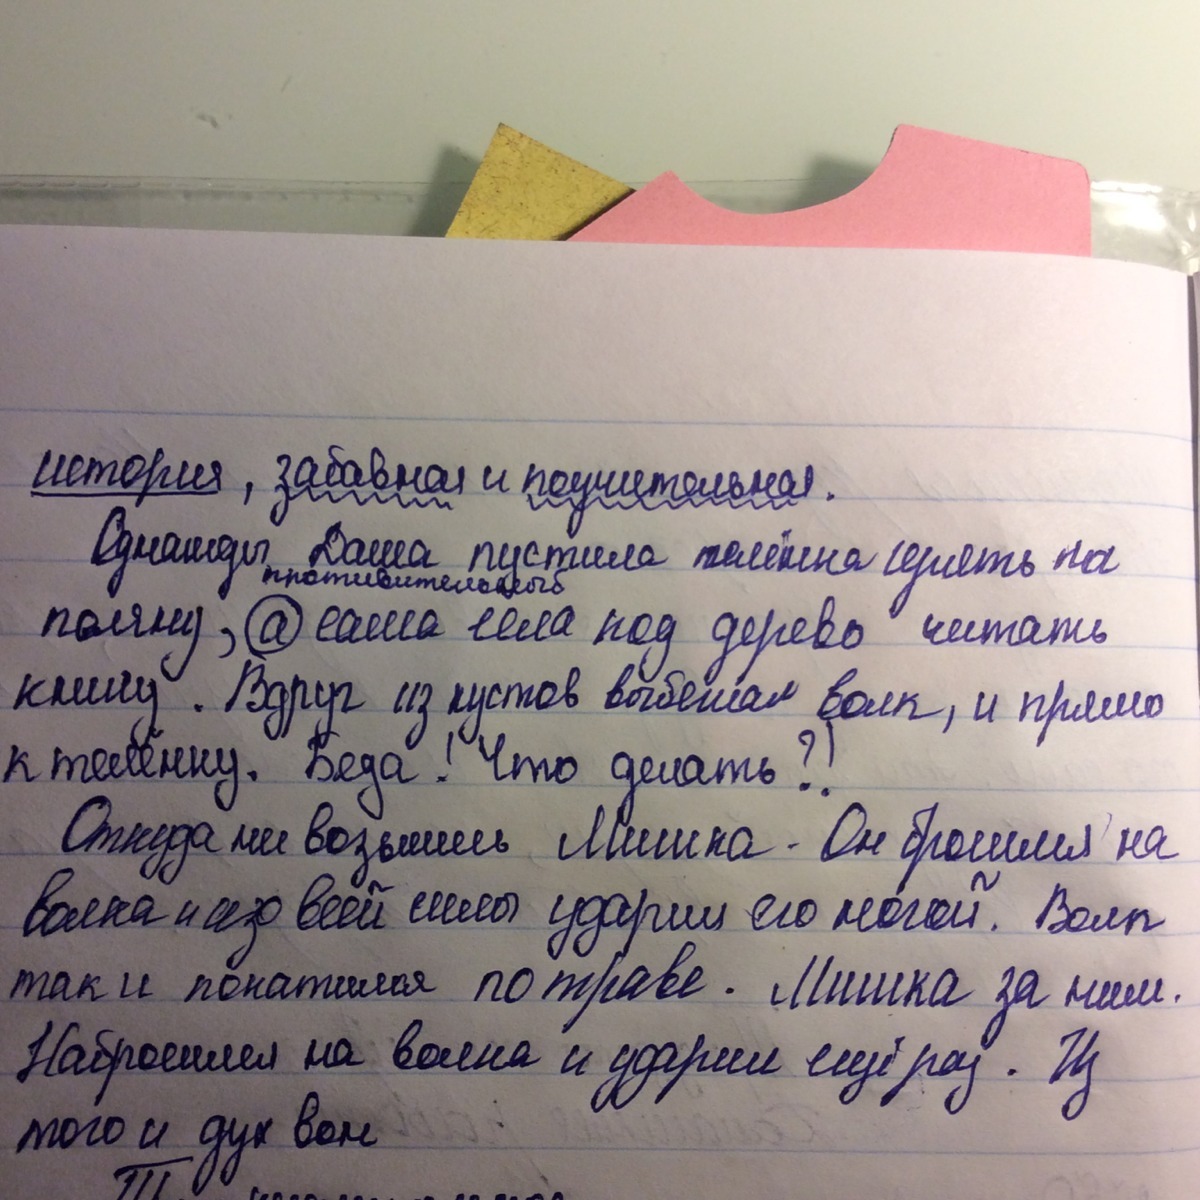 история, забавная и поучительная.
Однажды Даша пустила телёнка гулять на
противительный
поляну, а сама села под дерево читать
книгу. Вдруг из кустов выбежал волк, и прямо
к телёнку. Беда! Что делать?!
Откуда ни возьмись Мишка. Он бросился на
волка и изо всей силы ударил его ногой. Волк
так и покатился по траве. Мишка за ним.
Набросился на волка и ударил ещё раз. Из
того и дух вон